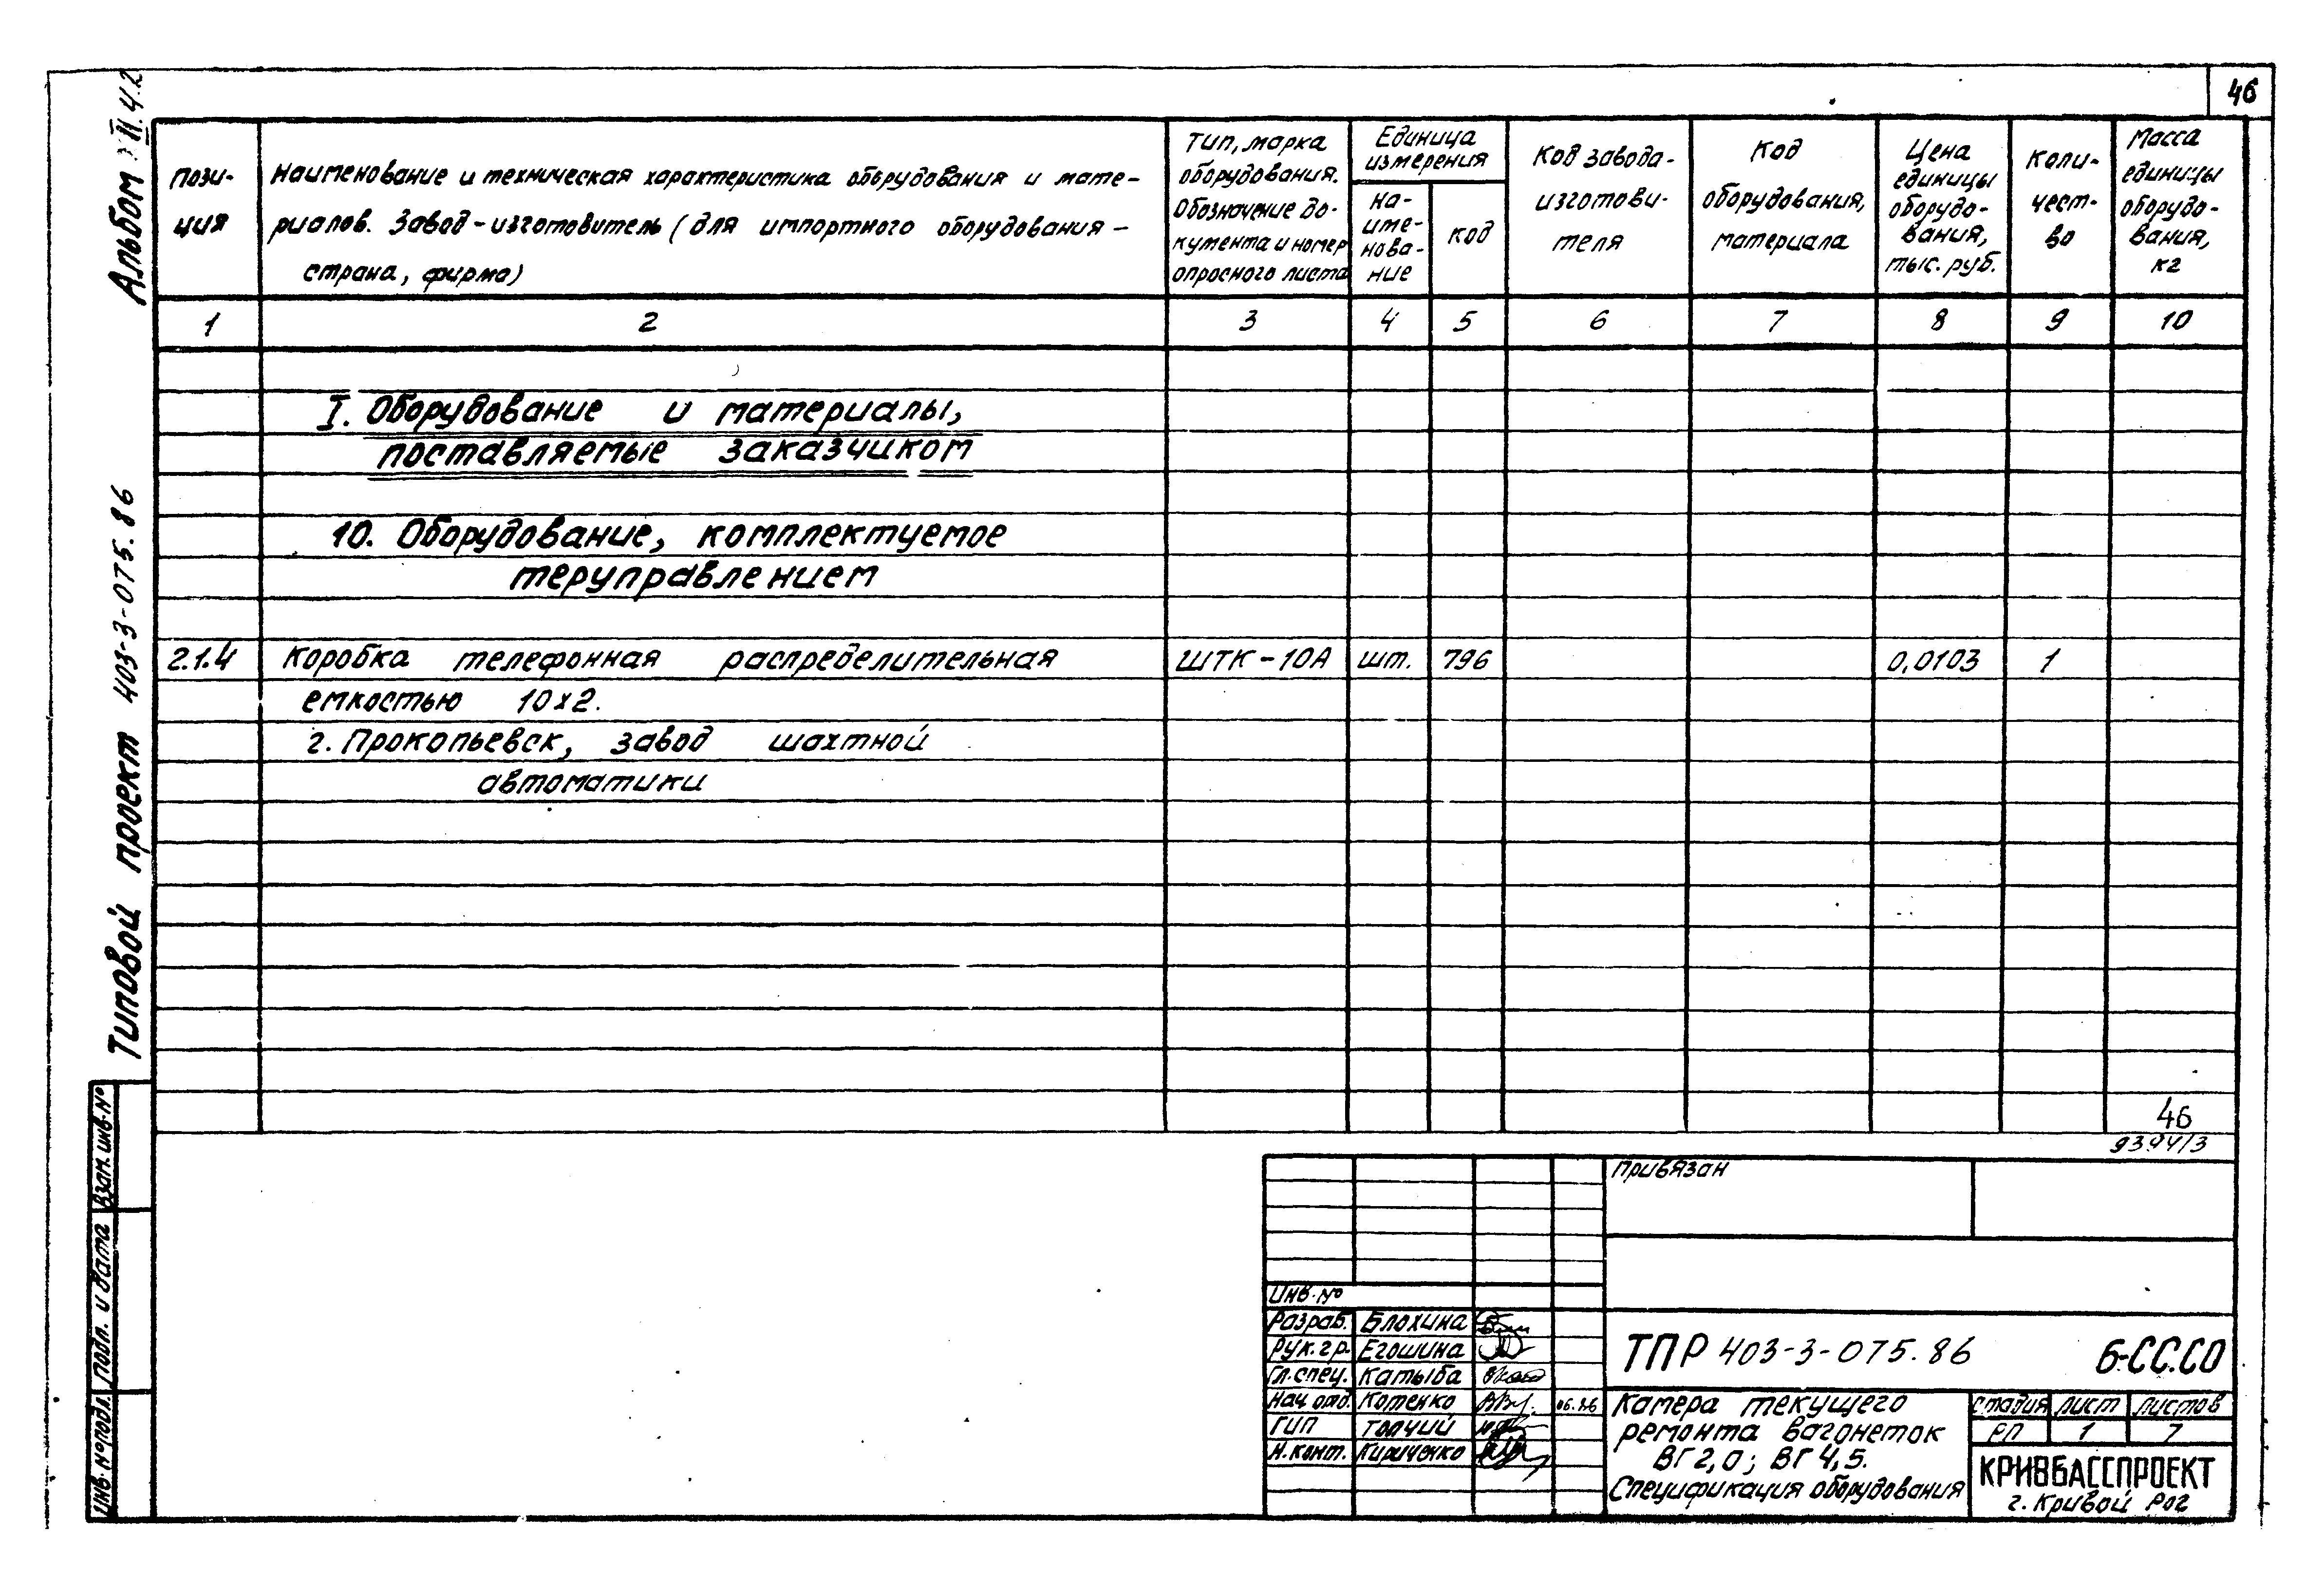 46
Альбом II.4.2
Типовой проект 403-3-075.86
Пози-
ция
Наименование и техническая характеристика оборудования и мате-
риалов. Завод-изготовитель (для импортного оборудования -
страна, фирма)
Тип, марка
оборудования.
Обозначение до-
кумента и номер
опросного листа
Единица
измерения
на-
име-
нова-
ние
код
Код завода-
изготови-
теля
Код
оборудования,
материала
Цена
единицы
оборудо-
вания,
тыс. руб.
Коли-
чест-
во
Масса
единицы
оборудо-
вания,
кг
1 2 3 4 5 6 7 8 9 10
I. Оборудование и материалы,
поставляемые заказчиком
10. Оборудование, комплектуемое
теруправлением
2.1.4 Коробка телефонная распределительная ШТК-10А шт. 796 0,0103 1
емкостью 10х2.
г. Прокопьевск, завод шахтной
автоматики
46
9394/3
Взам. инв. №
Подп. и дата
Инв. № подл.
Привязан
Инв. №
Разраб. Блохина
Рук. гр. Егошина
Гл. спец. Катыба
Нач отд. Котенко 06.86
ГИП Толчий
Н. конт. Кириченко
ТПР 403-3-075.86 6-СС.СО
Камера текущего
ремонта вагонеток
ВГ 2,0; ВГ 4,5.
Спецификация оборудования
Стадия Лист Листов
РП 1 7
КРИВБАССПРОЕКТ
г. Кривой Рог